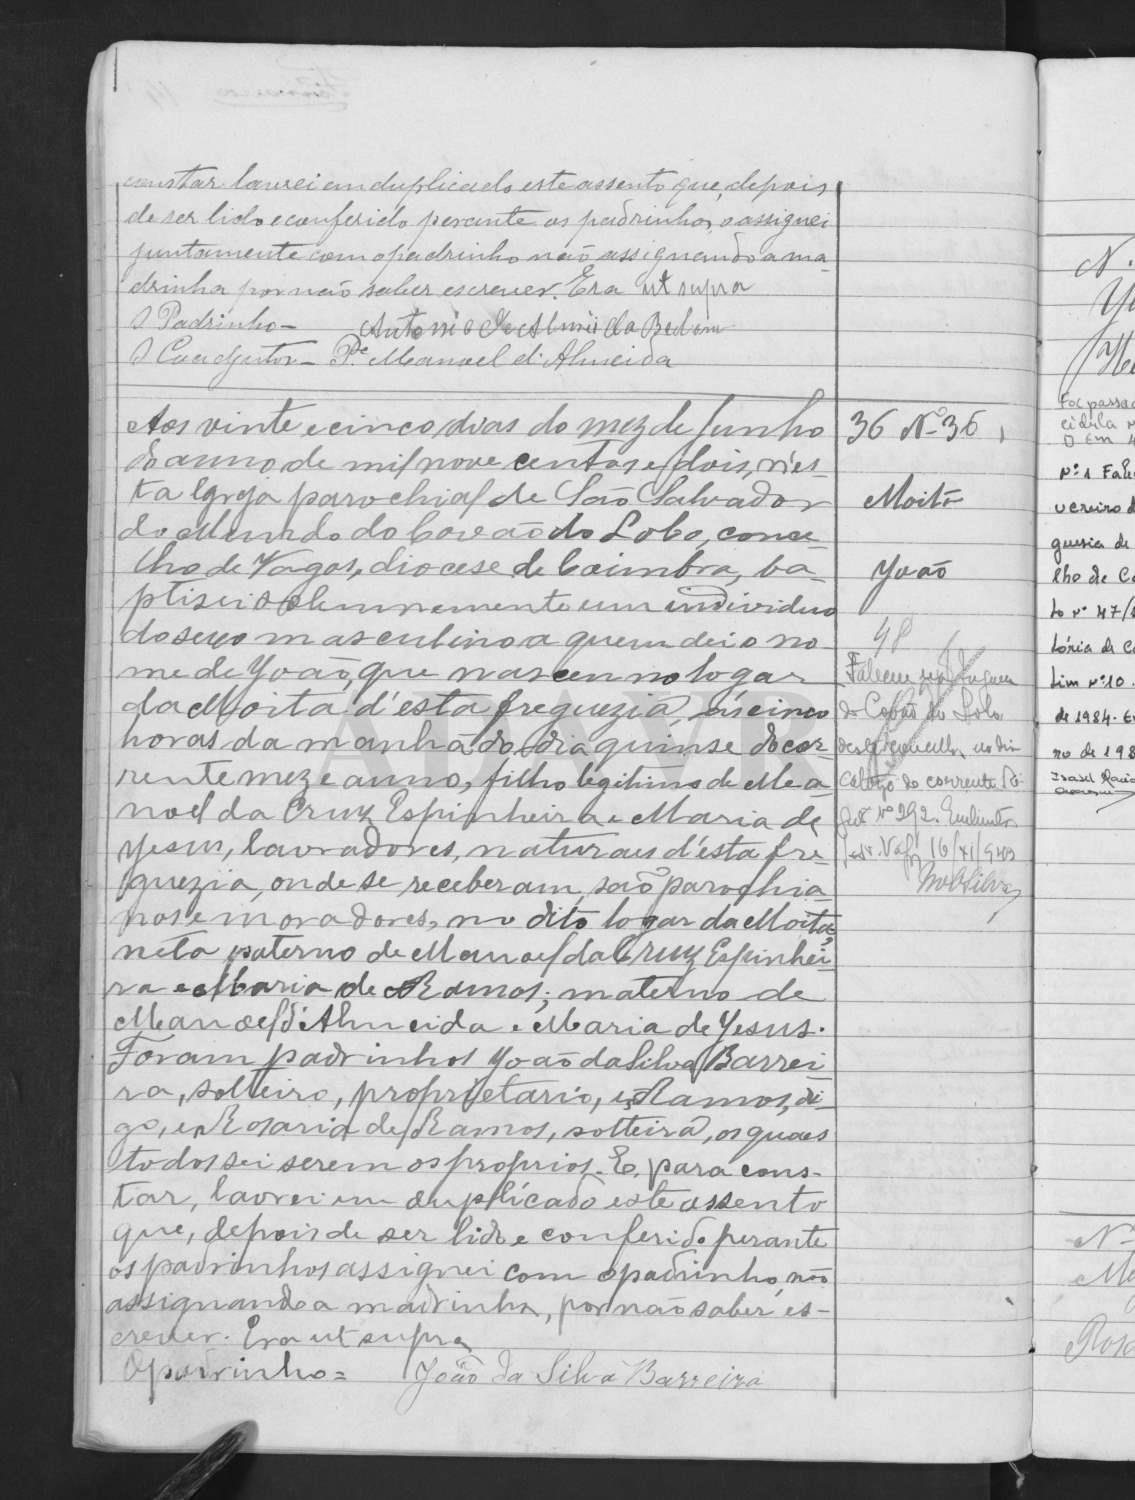 constar lavrei em duplicado este assento que, depois
de ser lido e conferido perante os padrinhos, o assignei
juntamente com o padrinho não assignando a ma-
drinha por não saber escrever. Era ut supra
O Padrinho - Antonio
O Coadjutor - Pe. Manoel d'Almeida
Aos vinte e cinco dias do mez de Junho
do anno de mil nove centos e dois, n'es-
ta Igreja parochial de São Salvador
do Mundo do Covão do Lobo, conce-
lho de Vagos, diocese de Coimbra, ba-
ptisei solemnemente um individuo
do sexo masculino a quem dei o no-
me de João, que nasceu no logar
da Moita d'esta freguezia, ás cinco
horas da manhã do dia quinse do cor-
rente mez e anno, filho legitimo de Ma-
noel da Cruz Espinheira e Maria de
Jesus, lavradores, naturaes d'esta fre-
guezia, onde se receberam, são parochia-
nos e moradores, no dito logar da Moita,
neto paterno de Manoel da Cruz Espinhei-
ra e Maria de Ramos; materno de
Manoel d'Almeida e Maria de Jesus.
Foram padrinhos João da Silva Barrei-
ra, solteiro, proprietario, e Ramos, di-
go, e Rosaria de Ramos, solteira, os quaes
todos sei serem os proprios. E, para cons-
tar, lavrei em duplicado este assento
que, depois de ser lido e conferido perante
os padrinhos assignei com o padrinho, não
assignando a madrinha, por não saber es-
crever. Era ut supra
O padrinho = João da Silva Barreira
36 Nº 36
Moita
João
Faleceu na freguesia
do Covão do Lobo
deste concelho, no dia
catorze do corrente. Re-
gisto nº 292.
16/XI/
Silva
ADAVR
Foi passad
cédula n
Nº 1 Fale
guesia de
lho de Ca
to nº 47/
tória de C
tim nº 10.
de 1984.
ro de 198
Nº